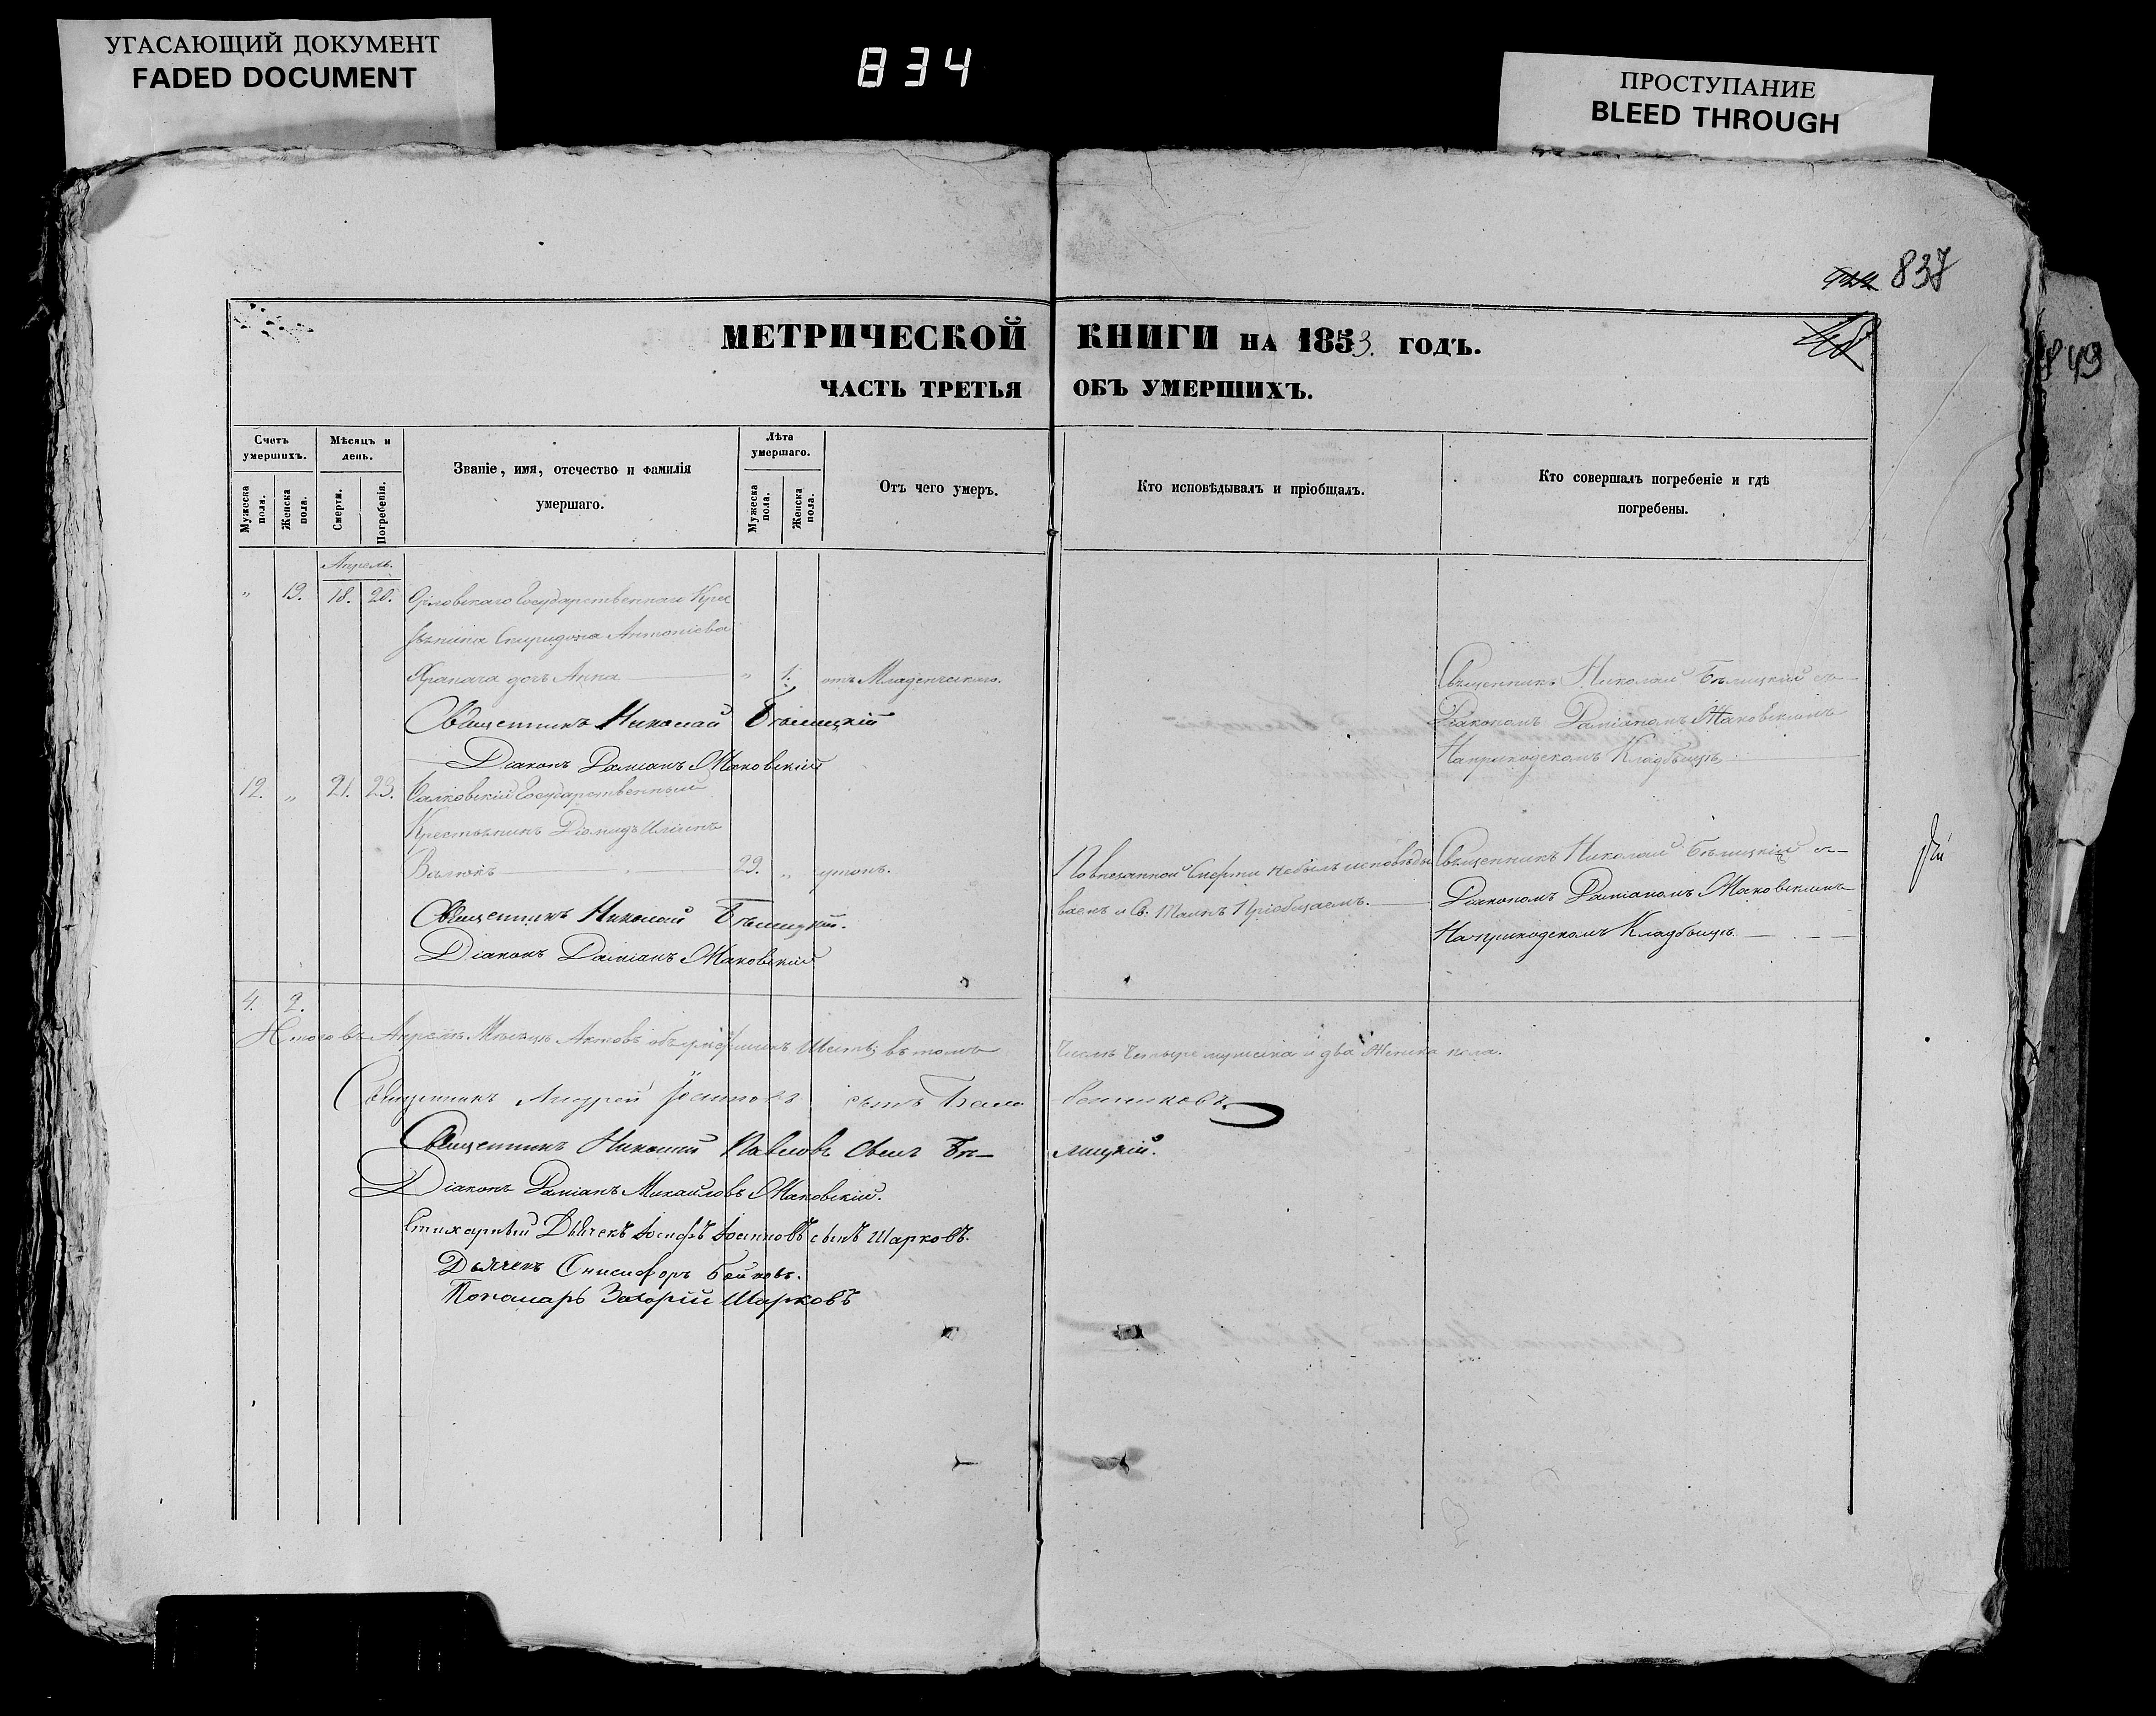 УГАСАЮЩИЙ ДОКУМЕНТ
FADED DOCUMENT
834
ПРОСТУПАНИЕ
BLEED THROUGH
837
849
МЕТРИЧЕСКОЙ КНИГИ НА 1853. ГОДЪ.
ЧАСТЬ ТРЕТЬЯ ОБЪ УМЕРШИХЪ.
Счетъ умершихъ.
Мѣсяцъ и день.
Званіе, имя, отечество и фамилія умершаго.
Лѣта умершаго.
Отъ чего умеръ.
Кто исповѣдывалъ и пріобщалъ.
Кто совершалъ погребеніе и гдѣ погребены.
Мужеска пола.
Женска пола.
Смерти.
Погребенія.
Мужеска пола.
Женска пола.
Апрель.
" 19. 18. 20. Орловскаго Государственнаго Крес
тьянина Спиридона Антоніева
дочь Анна " 1. отъ Младенческаго.
Священникъ Николай Бѣлицкій съ
Діакономъ Даміаномъ Маковскимъ
На приходскомъ Кладбищѣ
Священникъ Николай Бѣлицкій
Діаконъ Даміанъ Маковскій
12. " 21. 23. Государственный
Крестьянинъ Діомидъ Иліинъ
Валюкъ 29. " утопъ.
По внезапной Смерти небылъ исповѣды
ванъ и Св. Таинъ Пріобщаемъ.
Священникъ Николай Бѣлицкій съ
Діакономъ Даміаномъ Маковскимъ
На приходскомъ Кладбищѣ.
Священникъ Николай Бѣлицкій.
Діаконъ Даміанъ Маковскій
4. 2.
Итого въ Апрелѣ Мѣсяцѣ Актовъ объ умершихъ Шесть; въ томъ числѣ Четыре мужеска и два Женска пола.
Священникъ Андрей Іоанновъ сынъ
Священникъ Николай Павловъ сынъ Бѣ-лицкій.
Діаконъ Даміанъ Михайловъ Маковскій.
Стихарный Дьячекъ Іосифъ Іоанновъ сынъ Шарковъ.
Дьячекъ Онисифоръ Бойковъ.
Пономарь Захарій Шарковъ